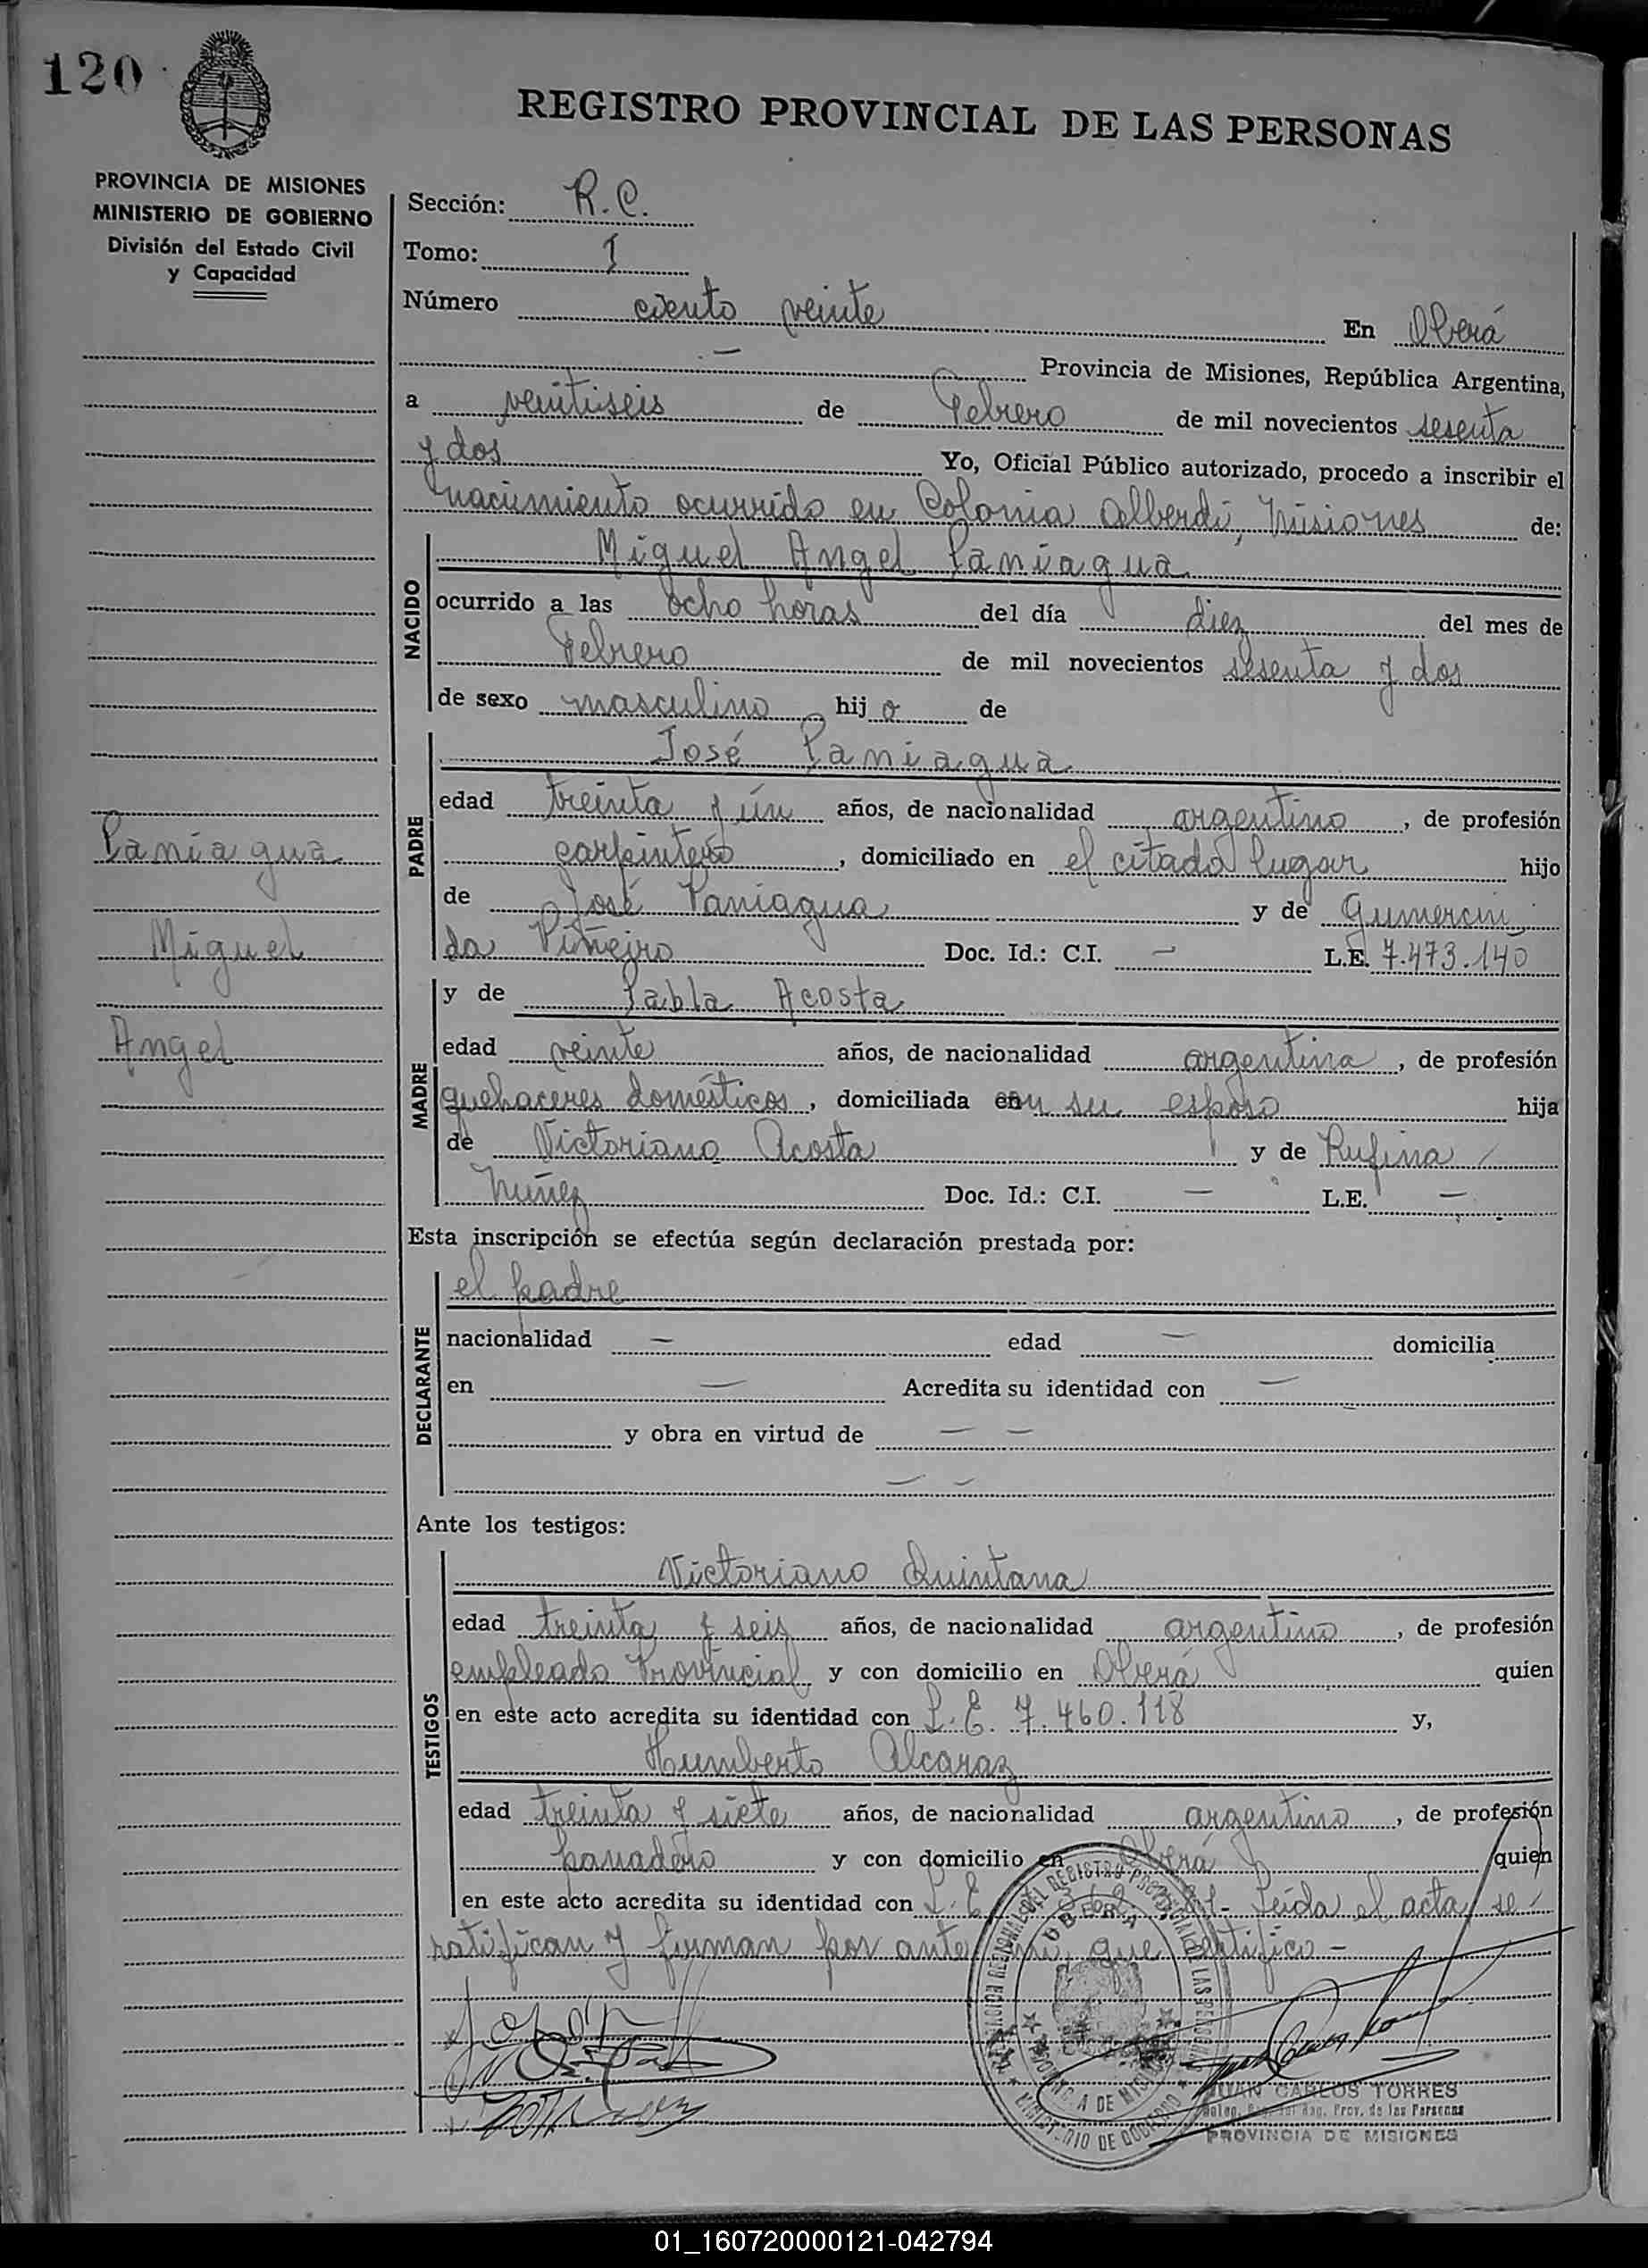 120
REGISTRO PROVINCIAL DE LAS PERSONAS
PROVINCIA DE MISIONES
MINISTERIO DE GOBIERNO
División del Estado Civil
y Capacidad
Sección: R. C.
Tomo: I
Número ciento veinte En Oberá
— Provincia de Misiones, República Argentina,
a veintiseis de Febrero de mil novecientos sesenta
y dos Yo, Oficial Público autorizado, procedo a inscribir el
nacimiento ocurrido en Colonia Alberdi, Misiones de:
NACIDO
Miguel Angel Paniagua
ocurrido a las ocho horas del día diez del mes de
Febrero de mil novecientos sesenta y dos
de sexo masculino hijo de
PADRE
José Paniagua
edad treinta y ún años, de nacionalidad argentino, de profesión
carpintero, domiciliado en el citado lugar hijo
de José Paniagua y de Gumercin
da Piñeiro Doc. Id.: C.I. — L.E. 7.473.140
Paniagua
Miguel
Angel
MADRE
y de Pabla Acosta
edad veinte años, de nacionalidad argentina, de profesión
quehaceres domésticos, domiciliada en su esposo hija
de Victoriano Acosta y de Rufina
Nuñez Doc. Id.: C.I. — L.E. —
Esta inscripción se efectúa según declaración prestada por:
DECLARANTE
el padre
nacionalidad — edad — domicilia
en — Acredita su identidad con —
y obra en virtud de — —
— —
Ante los testigos:
TESTIGOS
Victoriano Quintana
edad treinta y seis años, de nacionalidad argentino, de profesión
empleado Provincial y con domicilio en Oberá quien
en este acto acredita su identidad con L. E. 7.460.118 y,
Humberto Alcaraz
edad treinta y siete años, de nacionalidad argentino, de profesión
panadero y con domicilio en Oberá quien
en este acto acredita su identidad con L. E. Leida el acta, se
ratifican y firman por ante mi, que certifico —
OBERA
MINISTERIO DE GOBIERNO
JUAN CARLOS TORRES
Reg. Prov. de las Personas
PROVINCIA DE MISIONES
01_160720000121-042794